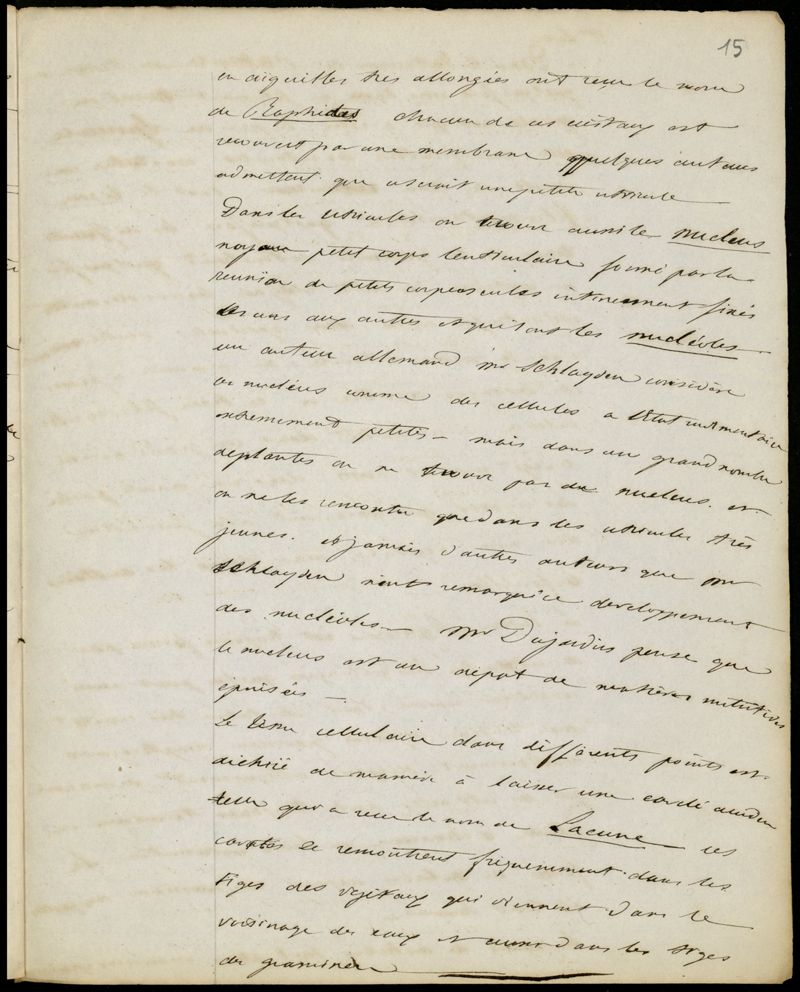 15
en aiguilles très allongées ont reçu le nom
de Raphides chacun de ces cristaux est
recouvert par une membrane quelques auteurs
admettent que ce serait une petite utricule
Dans les utricules on trouve aussi les nucleus
noyaux petit corps lenticulaire formé par la
reunion de petits corpuscules intimement fixés
les uns aux autres et qui sont les nucléoles
un auteur allemand mr Schlayden considère
ces nucléus comme des cellules a l'état rudimentaire
extremement petites – mais dans un grand nombre
de plantes on ne trouve pas de nucleus. et
on ne les rencontre que dans les utricules très
jeunes. et jamais d'autres auteurs que mr
Schlayden n'ont remarqué ce developpement
des nucléoles – Mr Dujardin pense que
le nucleus est un dépot de matières nutritives
épuisées –
Le tissu cellulaire dans différents points est
déchiré de manière à laisser une cavité
qui a reçu le nom de Lacune ces
cavités se remontrent fréquemment dans les
tiges des végétaux qui viennent dans le
voisinage des eaux et dans les tiges
de graminée